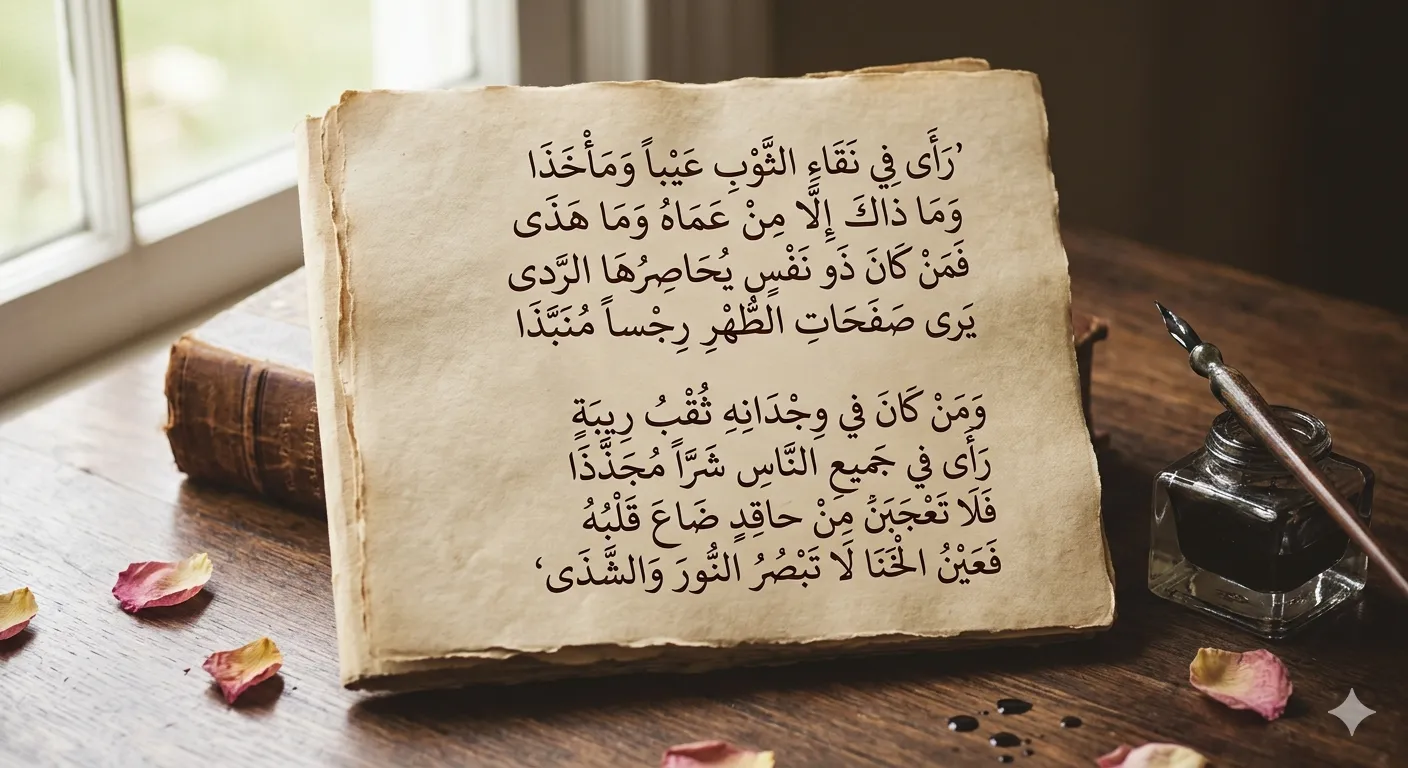 ’رَأَى فِي نَقَاءِ الثَّوْبِ عَيْباً وَمَأْخَذَا
وَمَا ذاكَ إِلَّا مِنْ عَمَاهُ وَمَا هَذَى
فَمَنْ كَانَ ذَو نَفْسٍ يُحَاصِرُهَا الرَّدى
يَرى صَفَحَاتِ الطُّهْرِ رِجْساً مُنَبَّذَا
وَمَنْ كَانَ في وِجْدَانِهِ ثُقْبُ رِيبَةٍ
رَأَى في جَميع النَّاسِ شَرَّاً مُجَذَّذَا
فَلَا تَعْجَبَنْ مِنْ حاقِدٍ ضَاعَ قَلْبُهُ
فَعَيْنُ الْخَنَا لَا تَبْصُرُ النُّورَ وَالشَّذَى‘